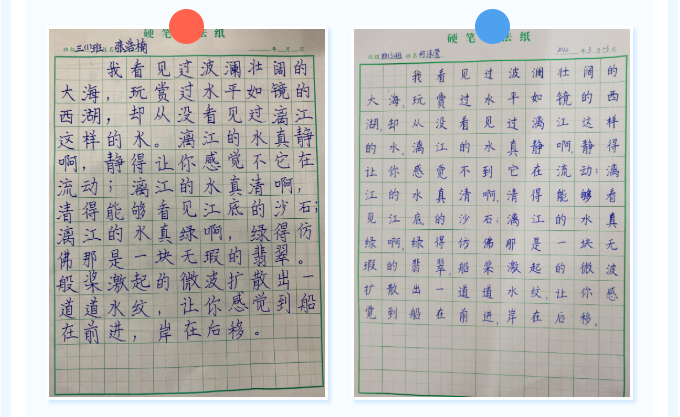 硬笔 法纸
班级 三(1)班 姓名 张浩楠 年 月 日
我看见过波澜壮阔的
大海，玩赏过水平如镜的
西湖，却从没看见过漓江
这样的水。漓江的水真静
啊，静得让你感觉不它在
流动；漓江的水真清啊，
清得能够看见江底的沙石；
漓江的水真绿啊，绿得仿
佛那是一块无瑕的翡翠。
般桨激起的微波扩散出一
道道水纹，让你感觉到船
在前进，岸在后移。
硬笔 法纸
班级 姓名 2022年3月 日
我看见过波澜壮阔的
大海，玩赏过水平如镜的西
湖，却从没看见过漓江这样
的水，漓江的水真静啊，静得
让你感觉不到它在流动；漓
江的水真清啊，清得能够看
见江底的沙石；漓江的水真
绿啊，绿得仿佛那是一块无
瑕的翡翠，船桨激起的微波
扩散出一道道水纹，让你感
觉到船在前进，岸在后移。